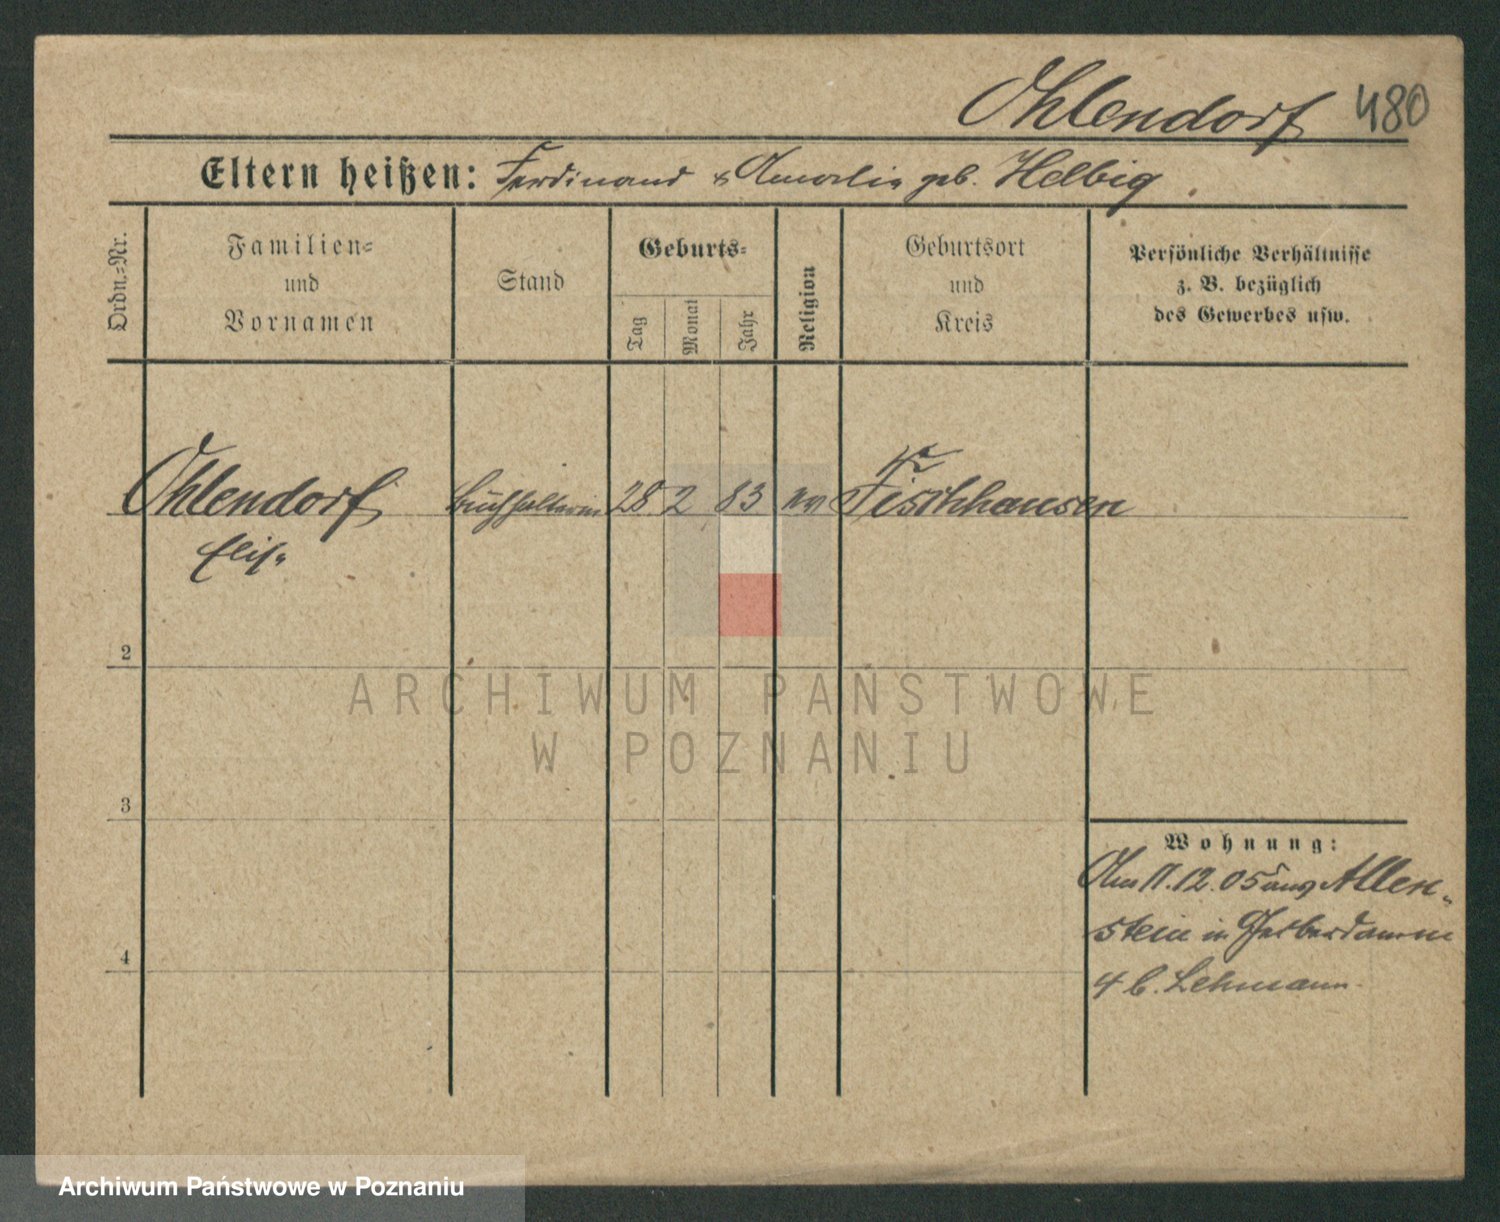 Ohlendorf 480
Eltern heißen: Ferdinand & Amalie geb. Helbig
Ordn.-Nr.
Familien-
und
Vornamen
Stand
Geburts-
Tag
Monat
Jahr
Religion
Geburtsort
und
Kreis
Persönliche Verhältnisse
z. B. bezüglich
des Gewerbes usw.
Kr
Ohlendorf Buchhalterin 28 2 83 ev Fischhausen
Elise
2
ARCHIWUM PAŃSTWOWE
W POZNANIU
3
Wohnung:
Am 11.12.05 Allen-
stein in Gerberdamm
4
4 b. Lehmann.
Archiwum Państwowe w Poznaniu